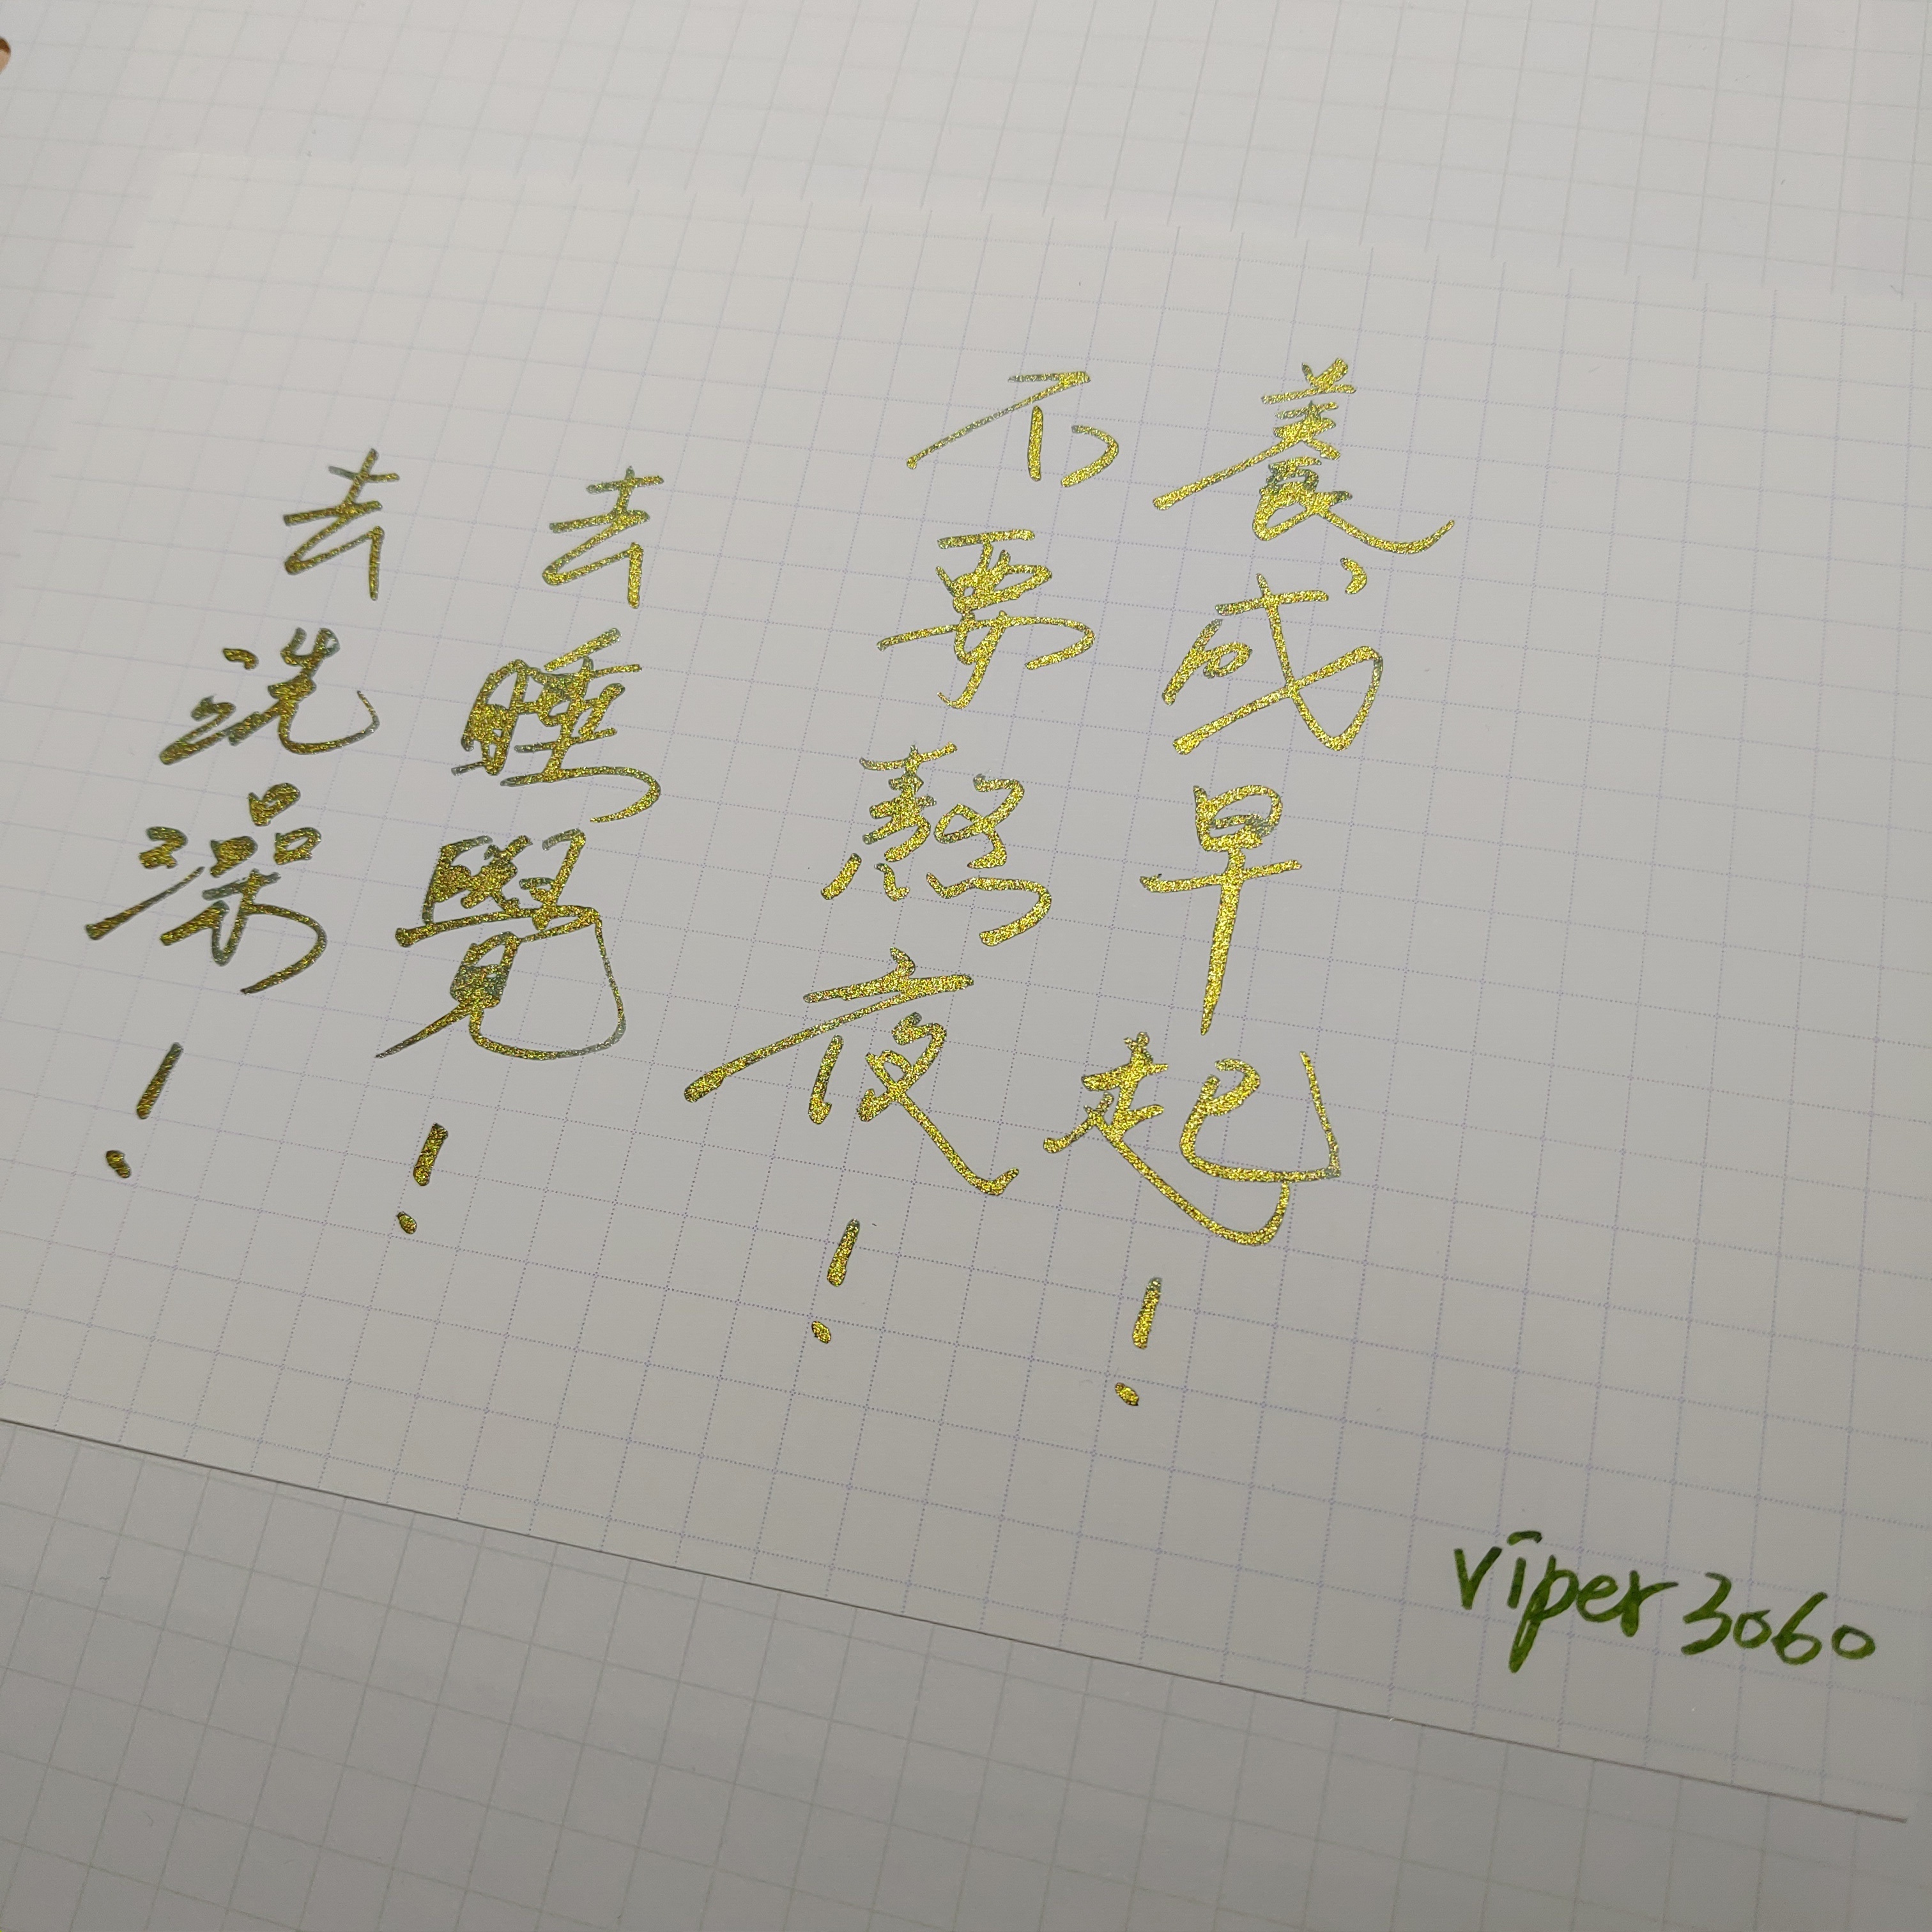 養成早起！
不要熬夜！
去睡覺！
去洗澡！
viper3060